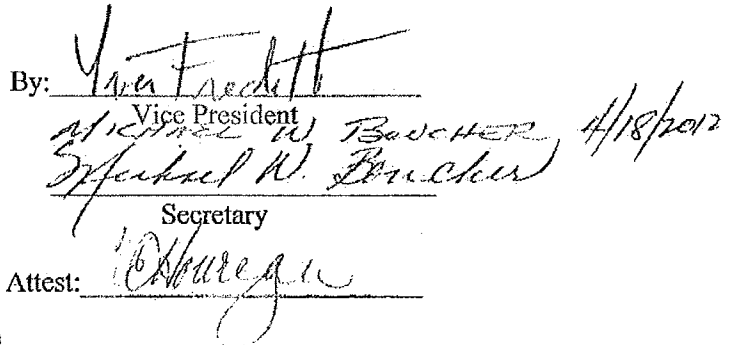 By:
Vice President
MICHAEL W BOUCHER 4/18/2012
Michael W. Boucher
Secretary
Attest: